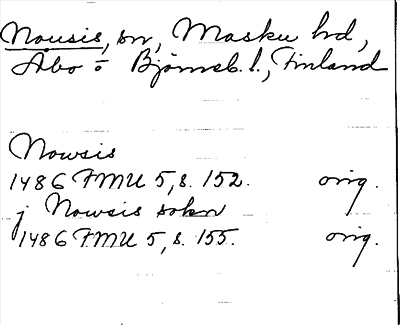 Nousis, sn, Masku hd,
Åbo o Björneb. l., Finland
Nowsis
1486 FMU 5, s. 152. orig.
j Nowsis sokn
1486 FMU 5, s. 155. orig.